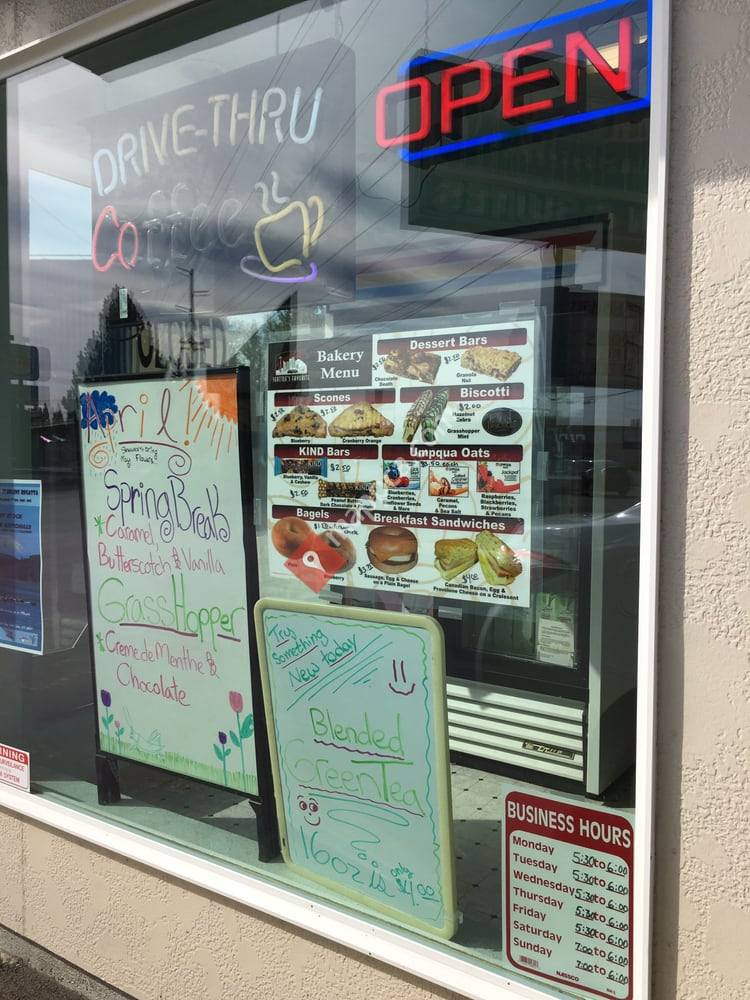 OPEN
DRIVE-THRU
Coffee
April!
Showers bring
May Flowers!
Spring Break
Caramel,
Butterscotch & Vanilla
GrassHopper
Creme de Menthe &
Chocolate
Bakery
Menu
SEATTLE'S FAVORITE
Dessert Bars
Chocolate
Granola
Nut
Scones
Blueberry
Cranberry Orange
Biscotti
$2.00
Hazelnut
Zebra
Grasshopper
Mint
KIND Bars
$2.50
Blueberry, Vanilla
& Cashew
$2.50
Peanut Butter
Dark Chocolate & Protein
Umpqua Oats
$3.50 each
Blueberries,
Cranberries,
Sunflower Seeds
& More
Caramel,
Pecans
& Sea Salt
Raspberries,
Blackberries,
Strawberries
& Pecans
Bagels
Plain
Breakfast Sandwiches
Sausage, Egg & Cheese
on a Plain Bagel
Canadian Bacon, Egg &
Provolone Cheese on a Croissant
Try
Something
New today
Blended
Green Tea
16oz is only $4.00
True
BUSINESS HOURS
Monday 5:30 to 6:00
Tuesday 5:30 to 6:00
Wednesday 5:30 to 6:00
Thursday 5:30 to 6:00
Friday 5:30 to 6:00
Saturday 7:00 to 6:00
Sunday 7:00 to 6:00